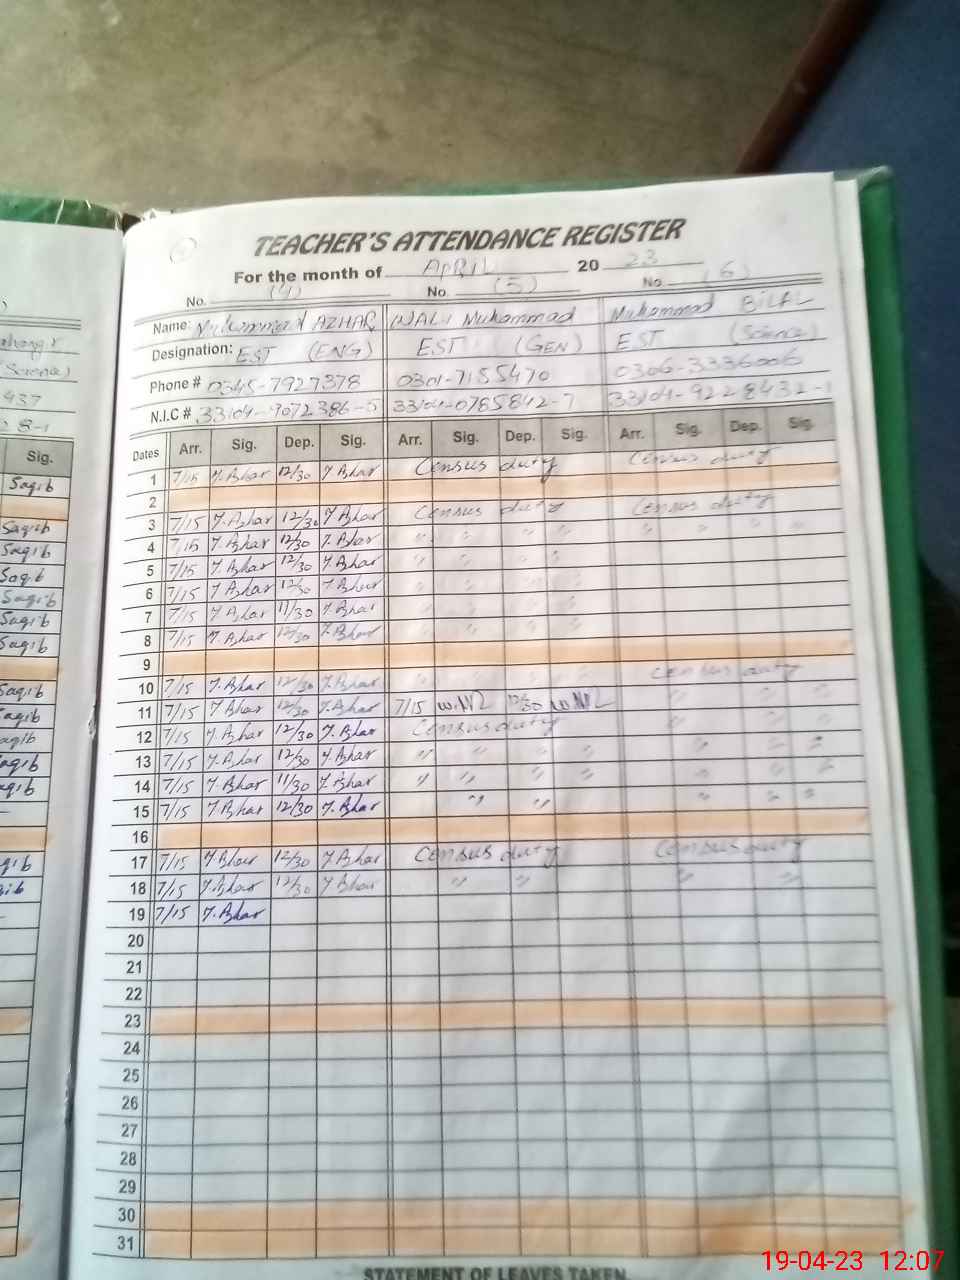 TEACHER'S ATTENDANCE REGISTER
For the month of APRIL 20 23
No. (4) No. (5) No. (6)
Name: Muhammad AZHAR WALI Muhammad Muhammad BILAL
Designation: EST (ENG) EST (GEN) EST (Science)
Phone # 0345-7927378 0301-7155470 0306-3336006
N.I.C # 33104-9072386-5 33104-0785842-7 33104-9228432-1
Dates Arr. Sig. Dep. Sig. Arr. Sig. Dep. Sig. Arr. Sig. Dep. Sig.
Sig.
1 7/15 M.Azhar 12/30 M.Azhar Census duty Census duty
Saqib
2
3 7/15 M.Azhar 12/30 M.Azhar Census duty Census duty
Saqib
4 7/15 M.Azhar 12/30 M.Azhar " " " " " " " "
Saqib
5 7/15 M.Azhar 12/30 M.Azhar " " " "
Saqib
6 7/15 M.Azhar 12/30 M.Azhar " " " "
Saqib
7 7/15 M.Azhar 11/30 M.Azhar " " " "
Saqib
8 7/15 M.Azhar 12/30 M.Azhar " " " "
Saqib
9
10 7/15 M.Azhar 12/30 M.Azhar Census duty
Saqib
11 7/15 M.Azhar 12/30 M.Azhar 7/15 12/30 " " "
Saqib
12 7/15 M.Azhar 12/30 M.Azhar Census duty " " "
aqib
13 7/15 M.Azhar 12/30 M.Azhar " " " " " " "
aqib
14 7/15 M.Azhar 11/30 M.Azhar " " " " " " "
aqib
15 7/15 M.Azhar 12/30 M.Azhar " " " " "
16
17 7/15 M.Azhar 12/30 M.Azhar Census duty Census duty
qib
18 7/15 M.Azhar 12/30 M.Azhar " " " "
qib
19 7/15 M.Azhar
20
21
22
23
24
25
26
27
28
29
30
31
STATEMENT OF LEAVES TAKEN
19-04-23 12:07